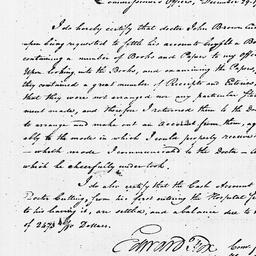 Commissioner's Office, December 29
I do hereby certify that doctor John Brown
upon being requested to settle his accounts brought a Bo
containing a number of Books and Papers to my office
Upon looking into the Books, and examining the Papers,
they contained a great number of Receipts and Entries
that they were not arranged in any particular
most made, and therefore I returned them to the D
to arrange and make out an Account from them, agre
ably to the mode in which I could properly receive
— which mode I communicated to the Doctor — 
which he chearfully undertook.
I do also certify that the Cash Account
Doctor Cutting, from his first entering the Hospital
to his leaving it, are settled, and a balance due to
of 2473 Dollars.
Edward Fox